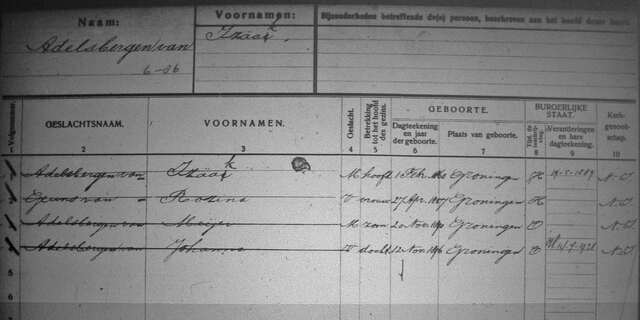 Naam: Voornamen: Bijzonderheden betreffende dezen persoon, beschreven aan het hoofd dezer kaart.
Adelsbergen van Izaäk.
6-06
Volgnummer. GESLACHTSNAAM. VOORNAMEN. Geslacht. Betrekking tot het hoofd des gezins. GEBOORTE. Dagteekening en jaar der geboorte. Plaats van geboorte. BURGERLIJKE STAAT. Veranderingen en hare dagteekening. Kerkgenootschap.
1 2 3 4 5 6 7 8 9 10
1 Adelsbergen van Izaäk M hoofd 1 Feb. Groningen H N-I
2 van Rozina V vrouw 27 Apr. Groningen H N-I
3 Adelsbergen van Meijer M zoon 20 Nov. Groningen O N-I
4 Adelsbergen van Johanna V docht 12 Nov. Groningen O N-I
5
6
7
8